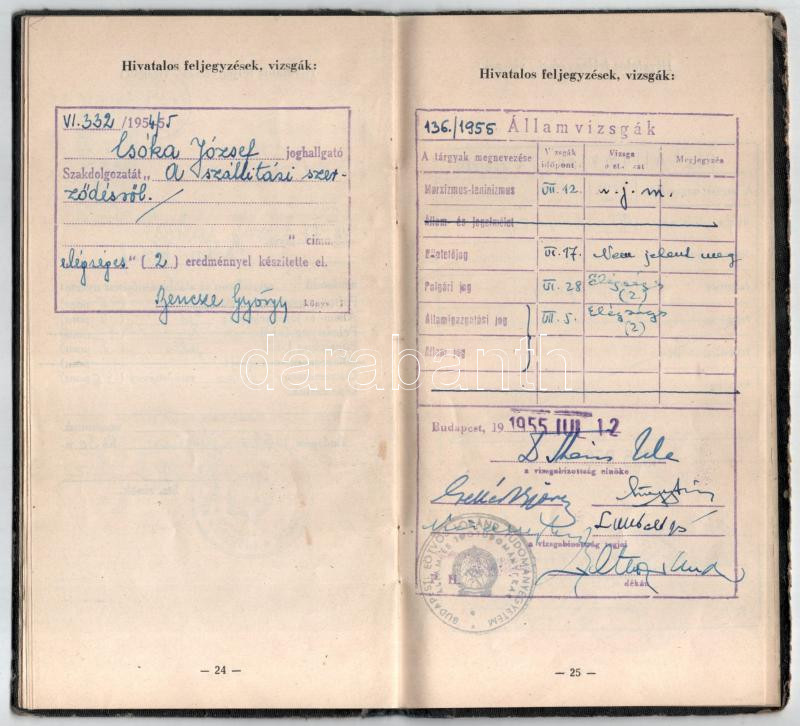 Hivatalos feljegyzések, vizsgák:
VI.332 /1954/55
Csóka József joghallgató
Szakdolgozatát „ A szállitási szer-
ződésről.
" cimü
elégséges" ( 2 ) eredménnyel készitette el.
Bencze György könyv
— 24 —
Hivatalos feljegyzések, vizsgák:
136./1955 Államvizsgák
A tárgyak megnevezése Vizsgák időpontja Vizsga Megjegyzés
Marxizmus-leninizmus VII. 12. n. j. m.
Állam- és jogelmélet
Büntetőjog VI. 17. Nem jelent meg
Polgári jog VI. 28 Elégséges
(2)
Államigazgatási jog VII. 5. Elégséges
(2)
Állam jog
Budapest, 19 1955 JUL 12
a vizsgabizottság elnöke
a vizsgabizottság tagjai
P. H.
dékán
BUDAPESTI EÖTVÖS LORÁND TUDOMÁNYEGYETEM
ÁLLAM- ÉS JOGTUDOMÁNYI KAR
— 25 —
darabanth